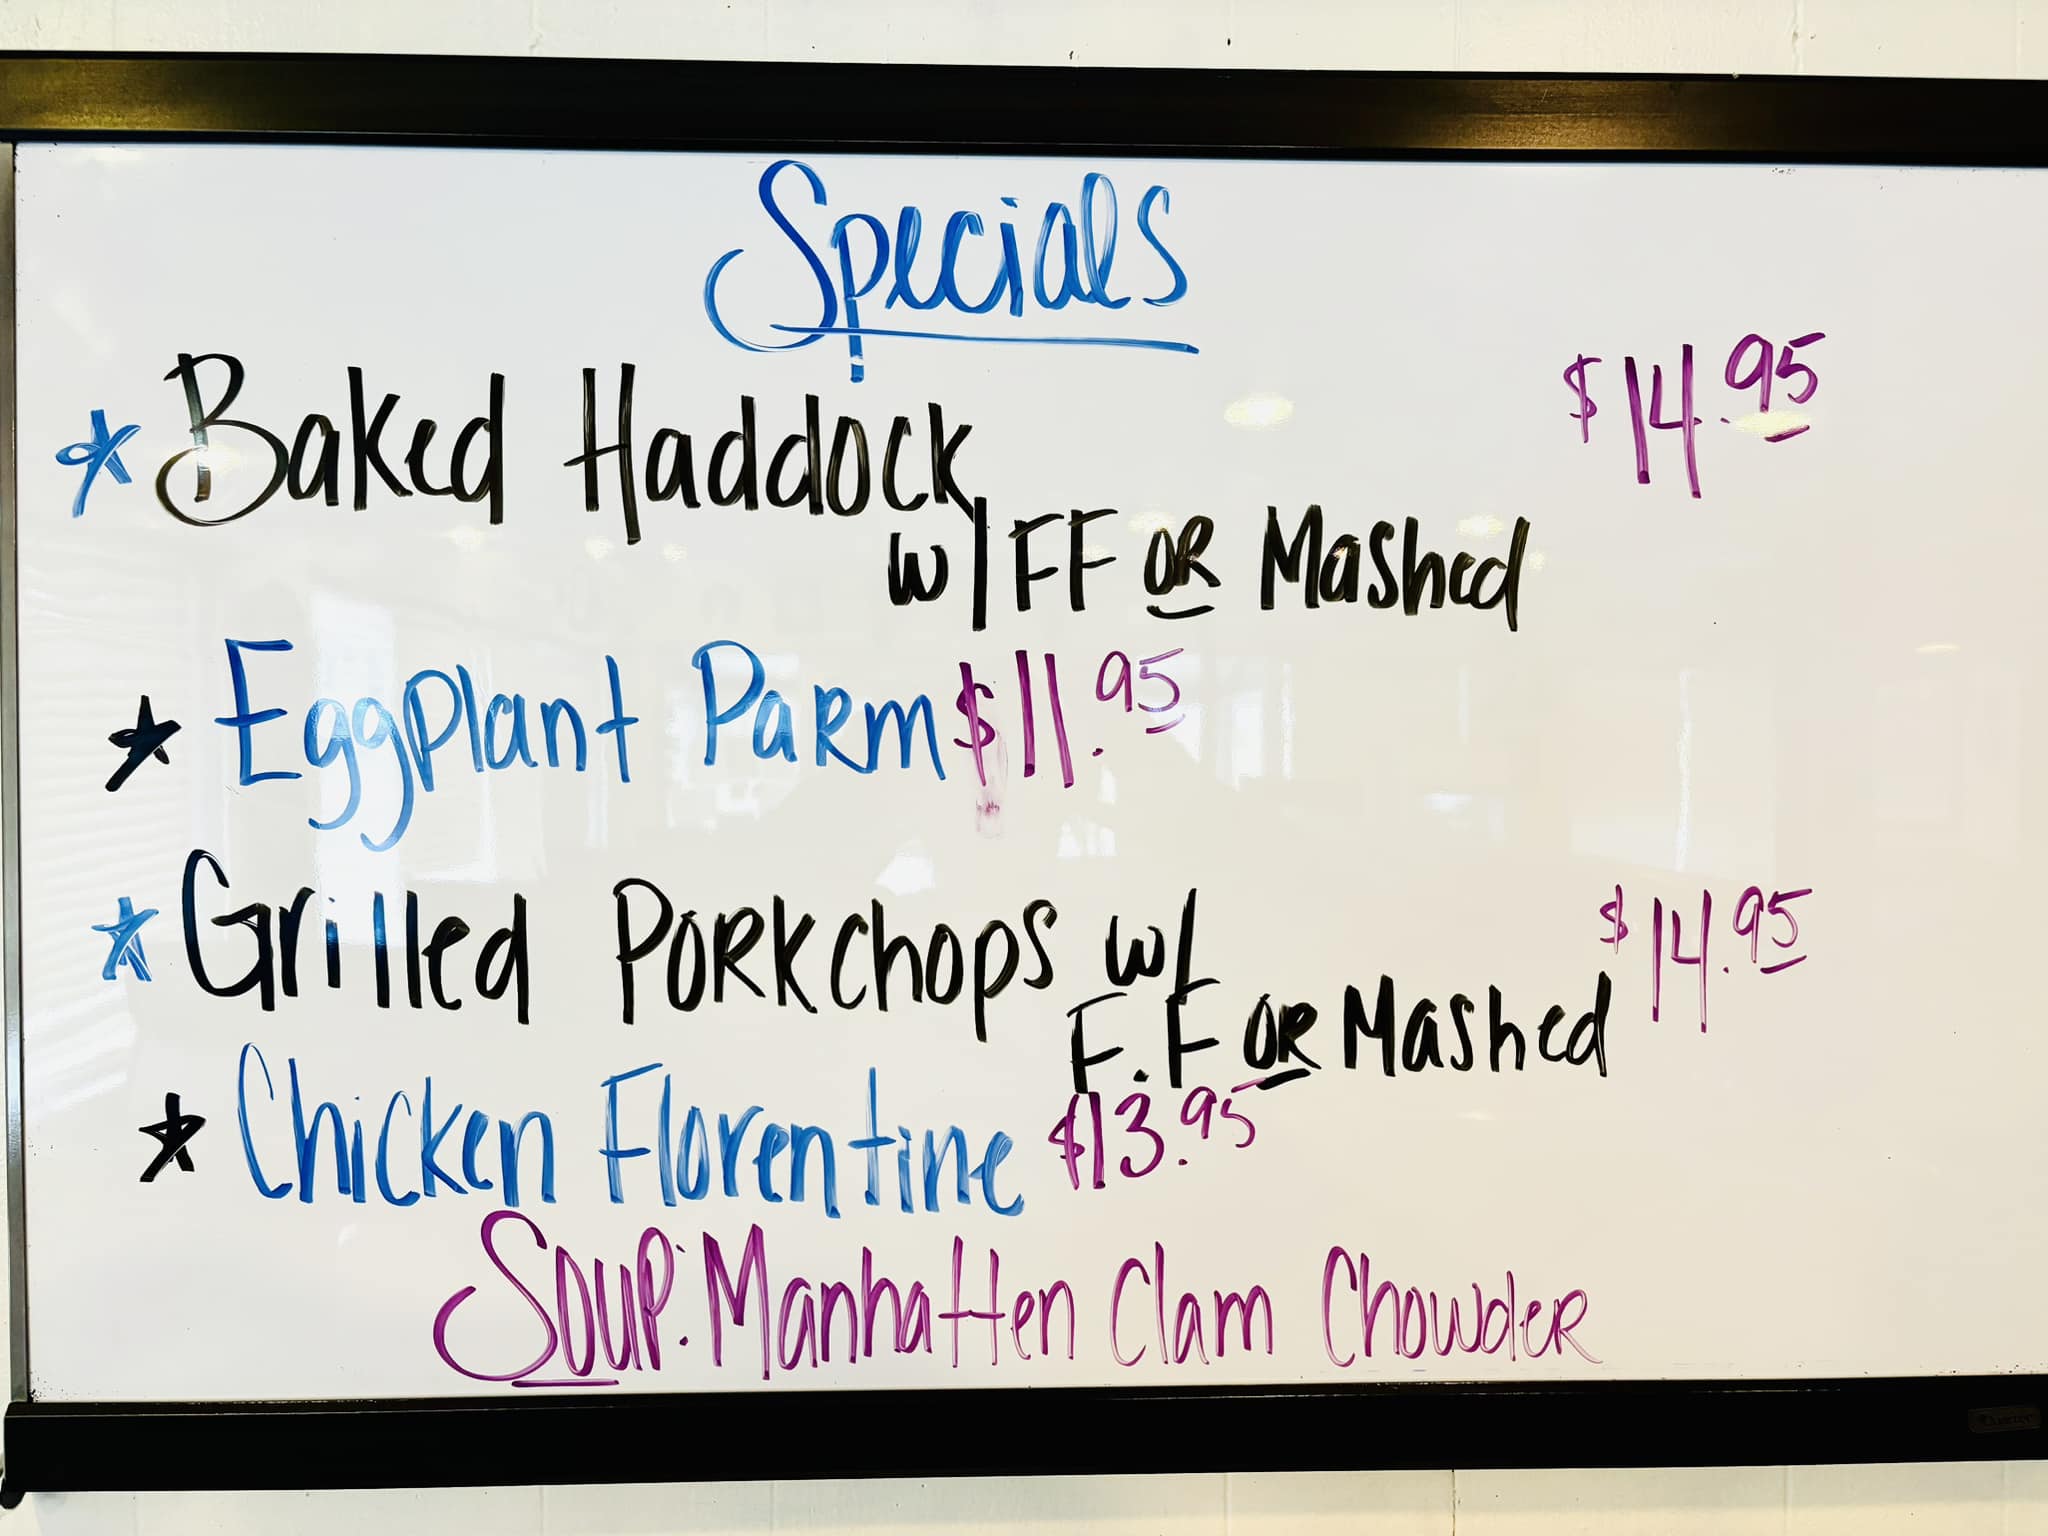 Specials
* Baked Haddock $14.95
w/ FF OR Mashed
* Eggplant Parm $11.95
* Grilled Porkchops w/ $14.95
F.F OR Mashed
* Chicken Florentine $13.95
Soup: Manhatten Clam Chowder